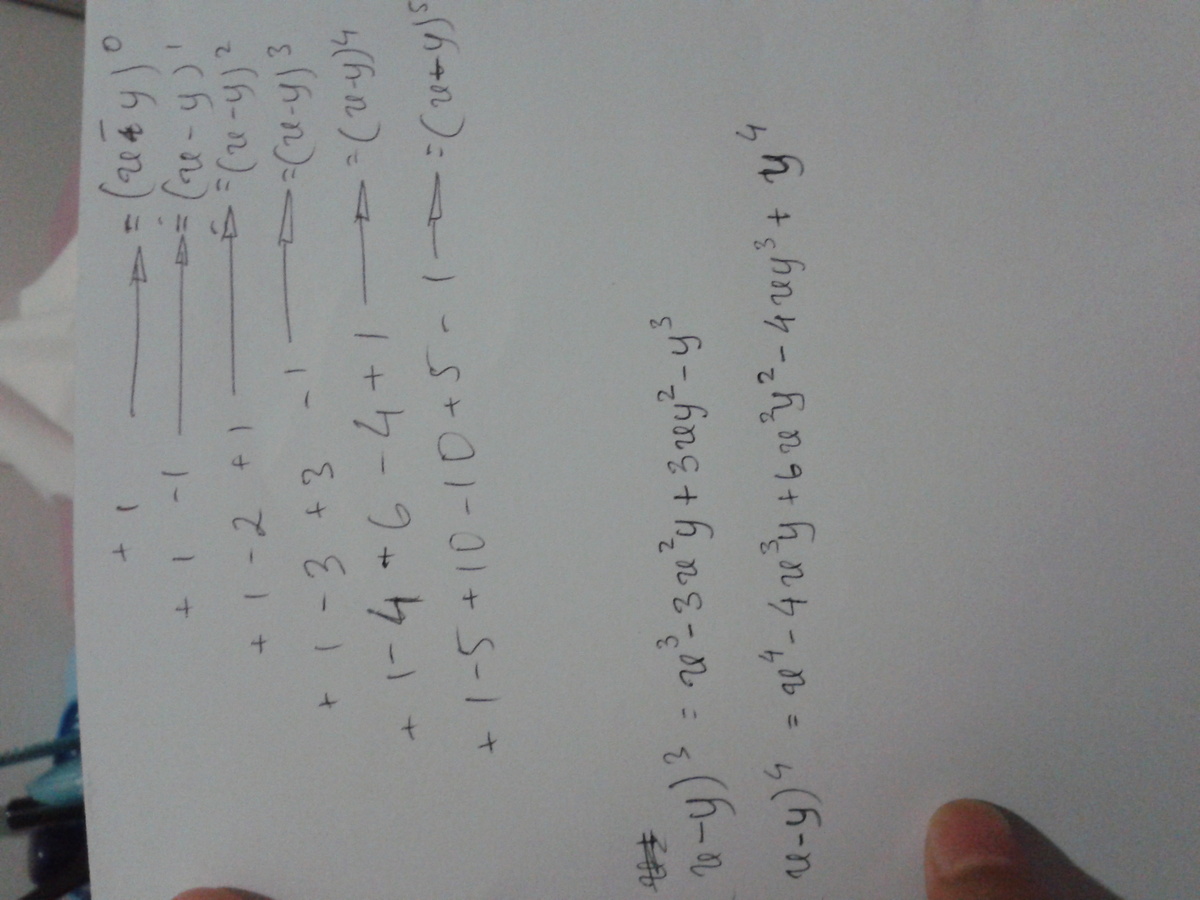 + 1 → = (x - y)^0
+ 1 - 1 → = (x - y)^1
+ 1 - 2 + 1 → = (x - y)^2
+ 1 - 3 + 3 - 1 → = (x - y)^3
+ 1 - 4 + 6 - 4 + 1 → = (x - y)^4
+ 1 - 5 + 10 - 10 + 5 - 1 → = (x - y)^5
x - y)^3 = x^3 - 3x^2y + 3xy^2 - y^3
x - y)^4 = x^4 - 4x^3y + 6x^3y^2 - 4xy^3 + y^4